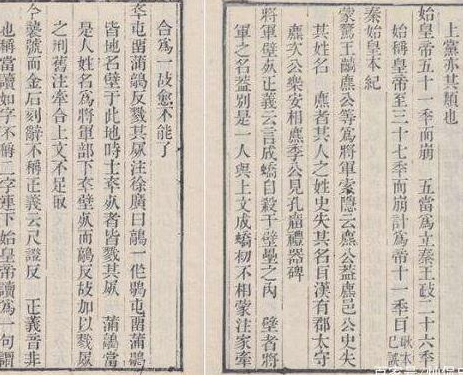 上黨亦其類也
始皇帝五十一季而崩　五當爲立秦王政二十六季
始稱皇帝至三十七季而崩計爲帝十一季曰耿本已誤
秦始皇本紀
蒙驁王齮麃公等爲將軍索隱云麃公蓋麃邑公史失
其姓名　麃者其人之姓史失其名自漢有郡太守
麃次公樂安相麃季公見孔廟禮器碑
將軍壁死正義云言成蟜自殺于壁壘之內　壁者將
軍之名蓋別是一人與上文成蟜初不相蒙注家牽
合爲一故愈不能了
卒屯畱蒲鶮反戮其屍注徐廣曰鶮一作鶡屯畱蒲鶡
皆地名壁于此地時士卒死者皆戮其屍　蒲鶮當
是人姓名爲將軍部下卒壁死而鶮反故加以戮屍
之刑舊注牽合上文不足取
今襲號而金石刻辭不稱正義云尺證反　正義音非
也稱當讀如字不稱二字連下始皇帝讀爲一句謂